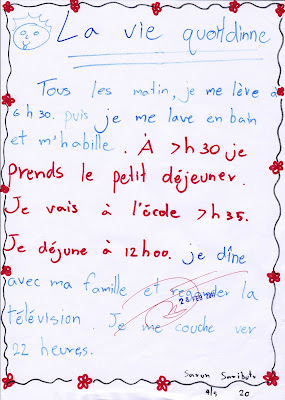 La vie quotidinne
Tous les matin, je me lève à
6 h 30. puis je me lave en bain
et m'habille. À 7h30 je
prends le petit déjeuner.
Je vais à l'école 7h35.
Je déjune à 12h00. je dîne
avec ma famille et regarder la
télévision. Je me couche ver
22 heures.
4/5 20